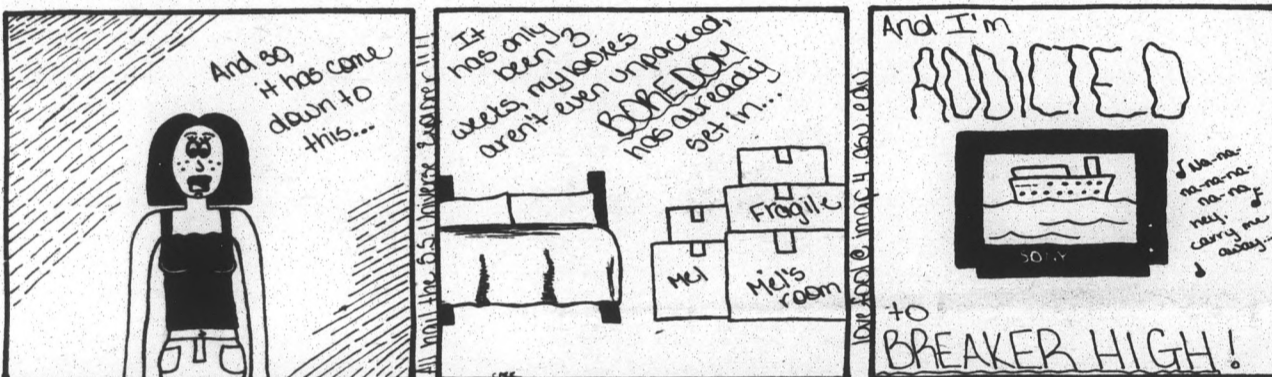 And so,
it has come
down to
this...
All hail the 5.5 inverse
It
has only
been 3
weeks, my boxes
aren't even unpacked,
BOREDOM
has already
set in...
Fragile
Mel
Mel's
room
And I'm
ADDICTED
SONY
♪Na-na-
na-na-na-
na-na♪
hey.
carry me
away...
♪
to
BREAKER HIGH!